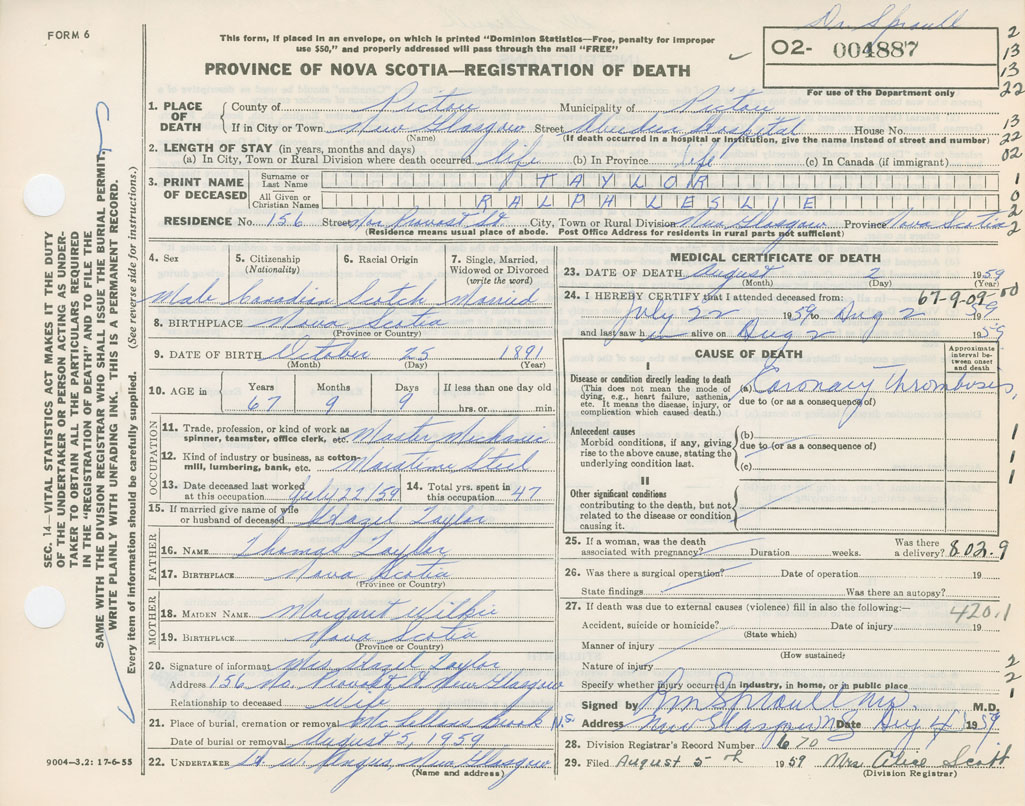 Dr Sproull
FORM 6
This form, if placed in an envelope, on which is printed "Dominion Statistics—Free, penalty for improper
use $50," and properly addressed will pass through the mail "FREE"
O2- 004887
PROVINCE OF NOVA SCOTIA—REGISTRATION OF DEATH
For use of the Department only
2
13
13
22
13
22
02
1
0
2
2
1. PLACE OF DEATH { County of Pictou Municipality of Pictou
If in City or Town New Glasgow Street Aberdeen Hospital House No.
(Name) (If death occurred in a hospital or institution, give the name instead of street and number)
2. LENGTH OF STAY (in years, months and days)
(a) In City, Town or Rural Division where death occurred life (b) In Province life (c) In Canada (if immigrant)
3. PRINT NAME OF DECEASED { Surname or Last Name TAYLOR
All Given or Christian Names RALPH LESLIE
RESIDENCE No. 156 Street No. Provost St City, Town or Rural Division New Glasgow Province Nova Scotia
(Residence means usual place of abode. Post Office Address for residents in rural parts not sufficient)
4. Sex 5. Citizenship (Nationality) 6. Racial Origin 7. Single, Married, Widowed or Divorced (write the word)
Male Canadian Scotch Married
8. BIRTHPLACE Nova Scotia
(Province or Country)
9. DATE OF BIRTH October 25 1891
(Month) (Day) (Year)
10. AGE in Years Months Days If less than one day old
67 9 9 hrs. or min.
OCCUPATION
11. Trade, profession, or kind of work as spinner, teamster, office clerk, etc. Master Mechanic
12. Kind of industry or business, as cotton-mill, lumbering, bank, etc. Maratime Steel
13. Date deceased last worked at this occupation July 22/59 14. Total yrs. spent in this occupation 47
15. If married give name of wife or husband of deceased Hazel Taylor
FATHER
16. NAME Thomas Taylor
17. BIRTHPLACE Nova Scotia
(Province or Country)
MOTHER
18. MAIDEN NAME Margaret Wilkie
19. BIRTHPLACE Nova Scotia
(Province or Country)
20. Signature of informant Mrs Hazel Taylor
Address 156 No. Provost St New Glasgow
Relationship to deceased wife
21. Place of burial, cremation or removal McLellans Brook N.S.
Date of burial or removal August 5, 1959
22. UNDERTAKER H. W. Angus, New Glasgow
(Name and address)
MEDICAL CERTIFICATE OF DEATH
23. DATE OF DEATH August 2 1959
(Month) (Day) (Year)
24. I HEREBY CERTIFY that I attended deceased from: 67-9-09-00
July 22 1959 to Aug 2 1959
and last saw h im alive on Aug 2 1959
CAUSE OF DEATH
Approximate interval between onset and death
I
Disease or condition directly leading to death
(This does not mean the mode of dying, e.g., heart failure, asthenia, etc. It means the disease, injury, or complication which caused death.)
(a) Coronary Thrombosis,
due to (or as a consequence of)
Antecedent causes
Morbid conditions, if any, giving rise to the above cause, stating the underlying condition last.
(b)
due to (or as a consequence of)
(c)
1
1
1
II
Other significant conditions
contributing to the death, but not related to the disease or condition causing it.
25. If a woman, was the death associated with pregnancy? Duration weeks. Was there a delivery? 802.9
26. Was there a surgical operation? Date of operation 19
State findings Was there an autopsy?
27. If death was due to external causes (violence) fill in also the following:— 420.1
Accident, suicide or homicide? Date of injury 19
(State which)
Manner of injury
(How sustained)
Nature of injury
2
2
1
Specify whether injury occurred in industry, in home, or in public place
Signed by Sproull M.D. M.D.
Address New Glasgow NS Date Aug 4 1959
28. Division Registrar's Record Number 670
29. Filed August 5th 1959 Mrs. Alice Scott
(Division Registrar)
SEC. 14—VITAL STATISTICS ACT MAKES IT THE DUTY
OF THE UNDERTAKER OR PERSON ACTING AS UNDER-
TAKER TO OBTAIN ALL THE PARTICULARS REQUIRED
IN THE "REGISTRATION OF DEATH" AND TO FILE THE
SAME WITH THE DIVISION REGISTRAR WHO SHALL ISSUE THE BURIAL PERMIT.
WRITE PLAINLY WITH UNFADING INK. THIS IS A PERMANENT RECORD.
Every item of information should be carefully supplied. (See reverse side for instructions.)
9004—3.2: 17-6-55